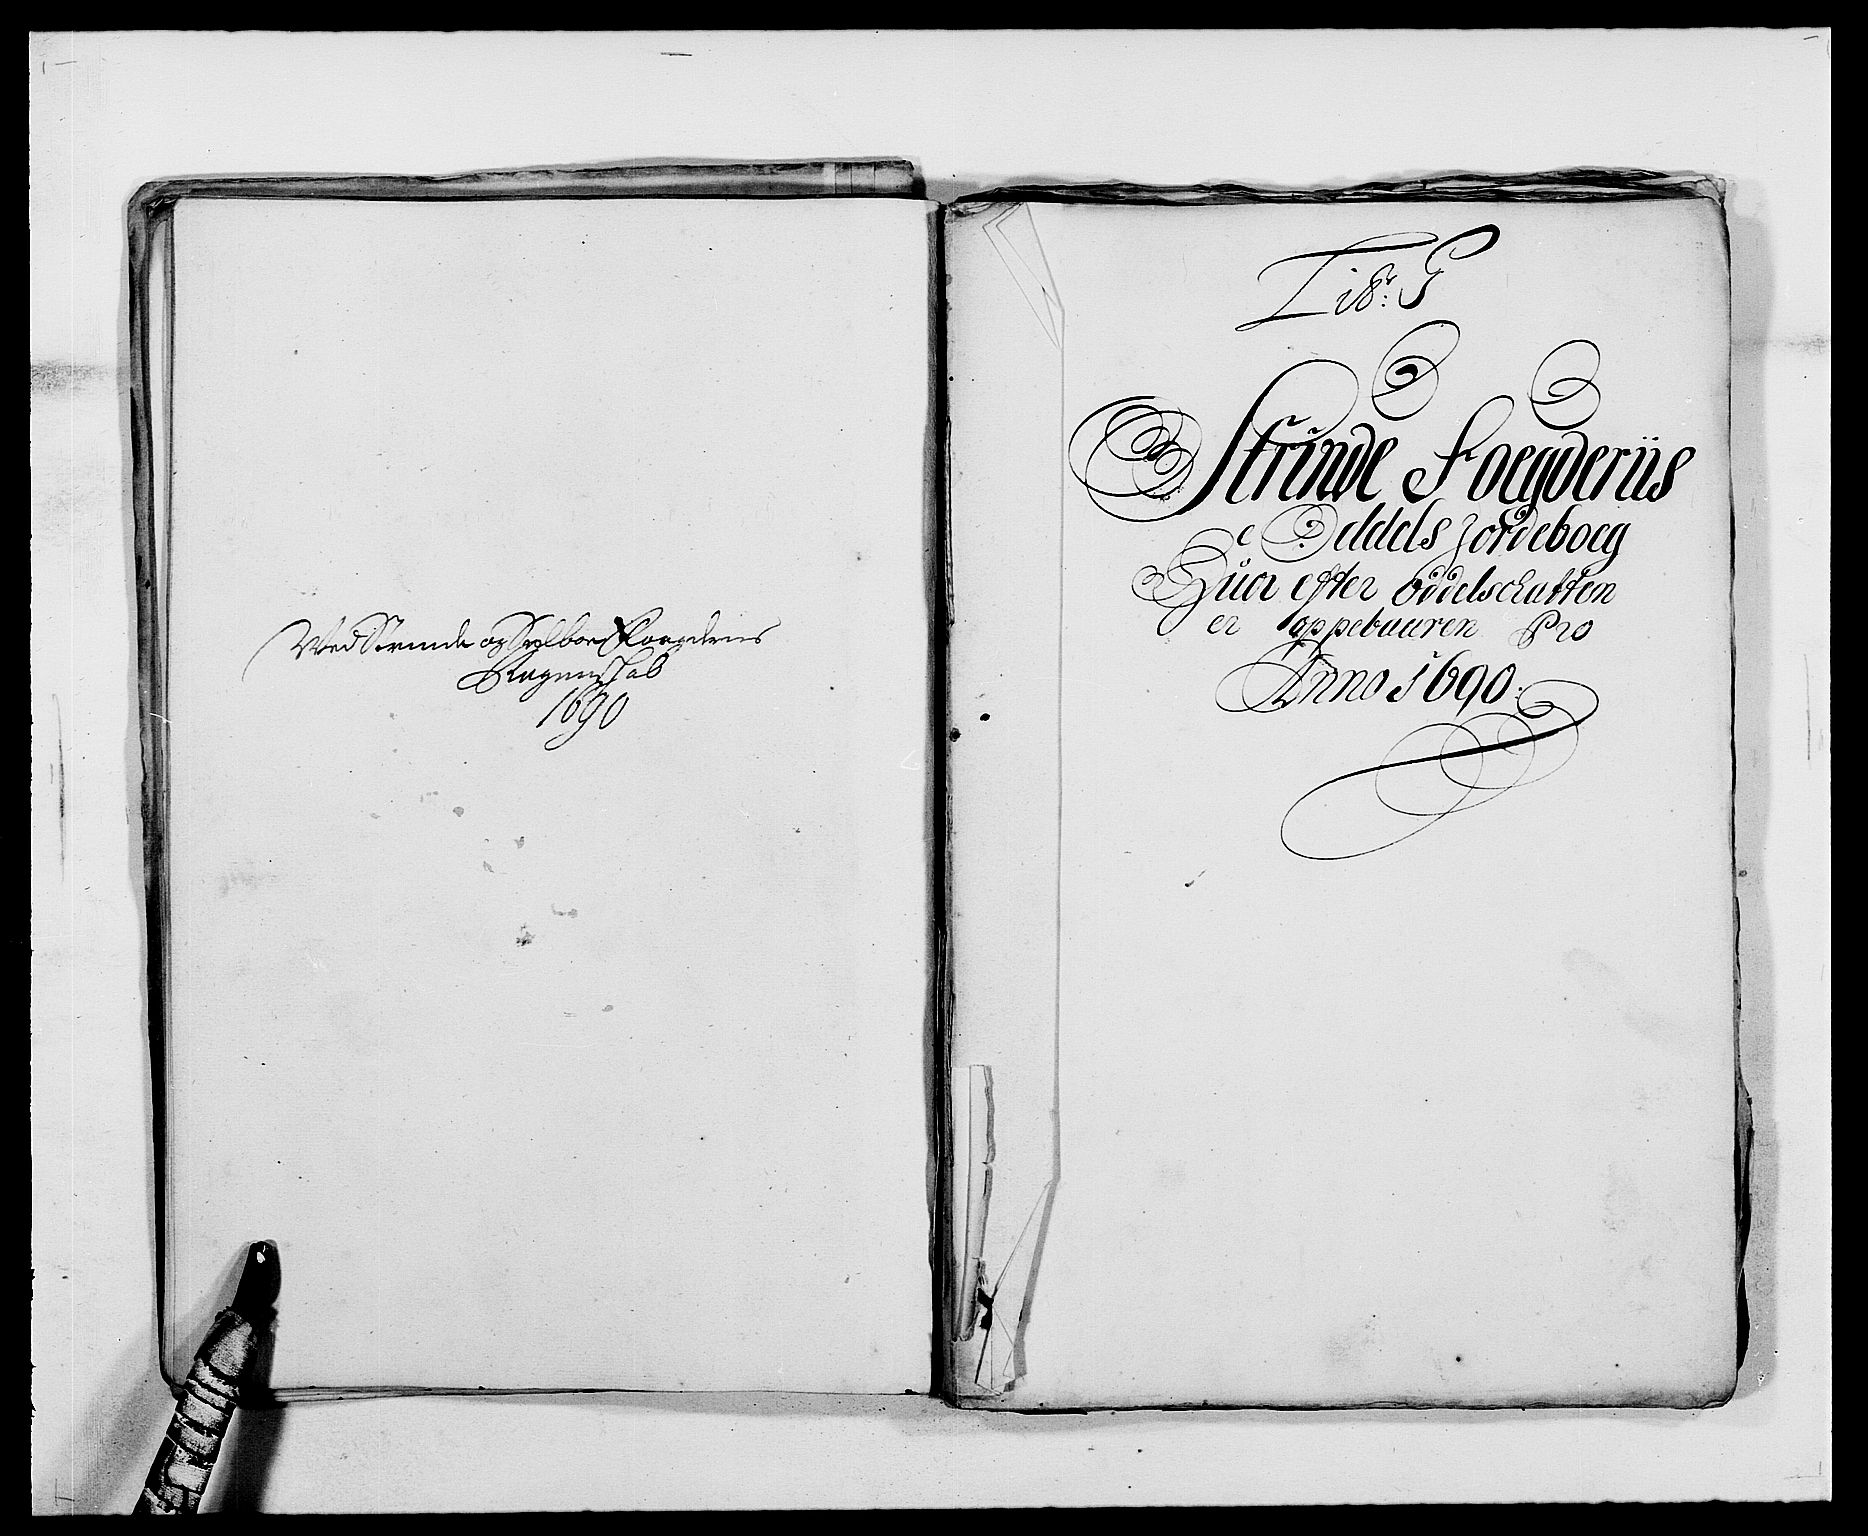 Ved Strinde og Selboe Foegderiis
Regenschab
1690
Litr: G
Strinde Foegderiis
Oddels Jordeboeg
Huor efter Oddelschatten
er oppebaaren Pro
Anno 1690: